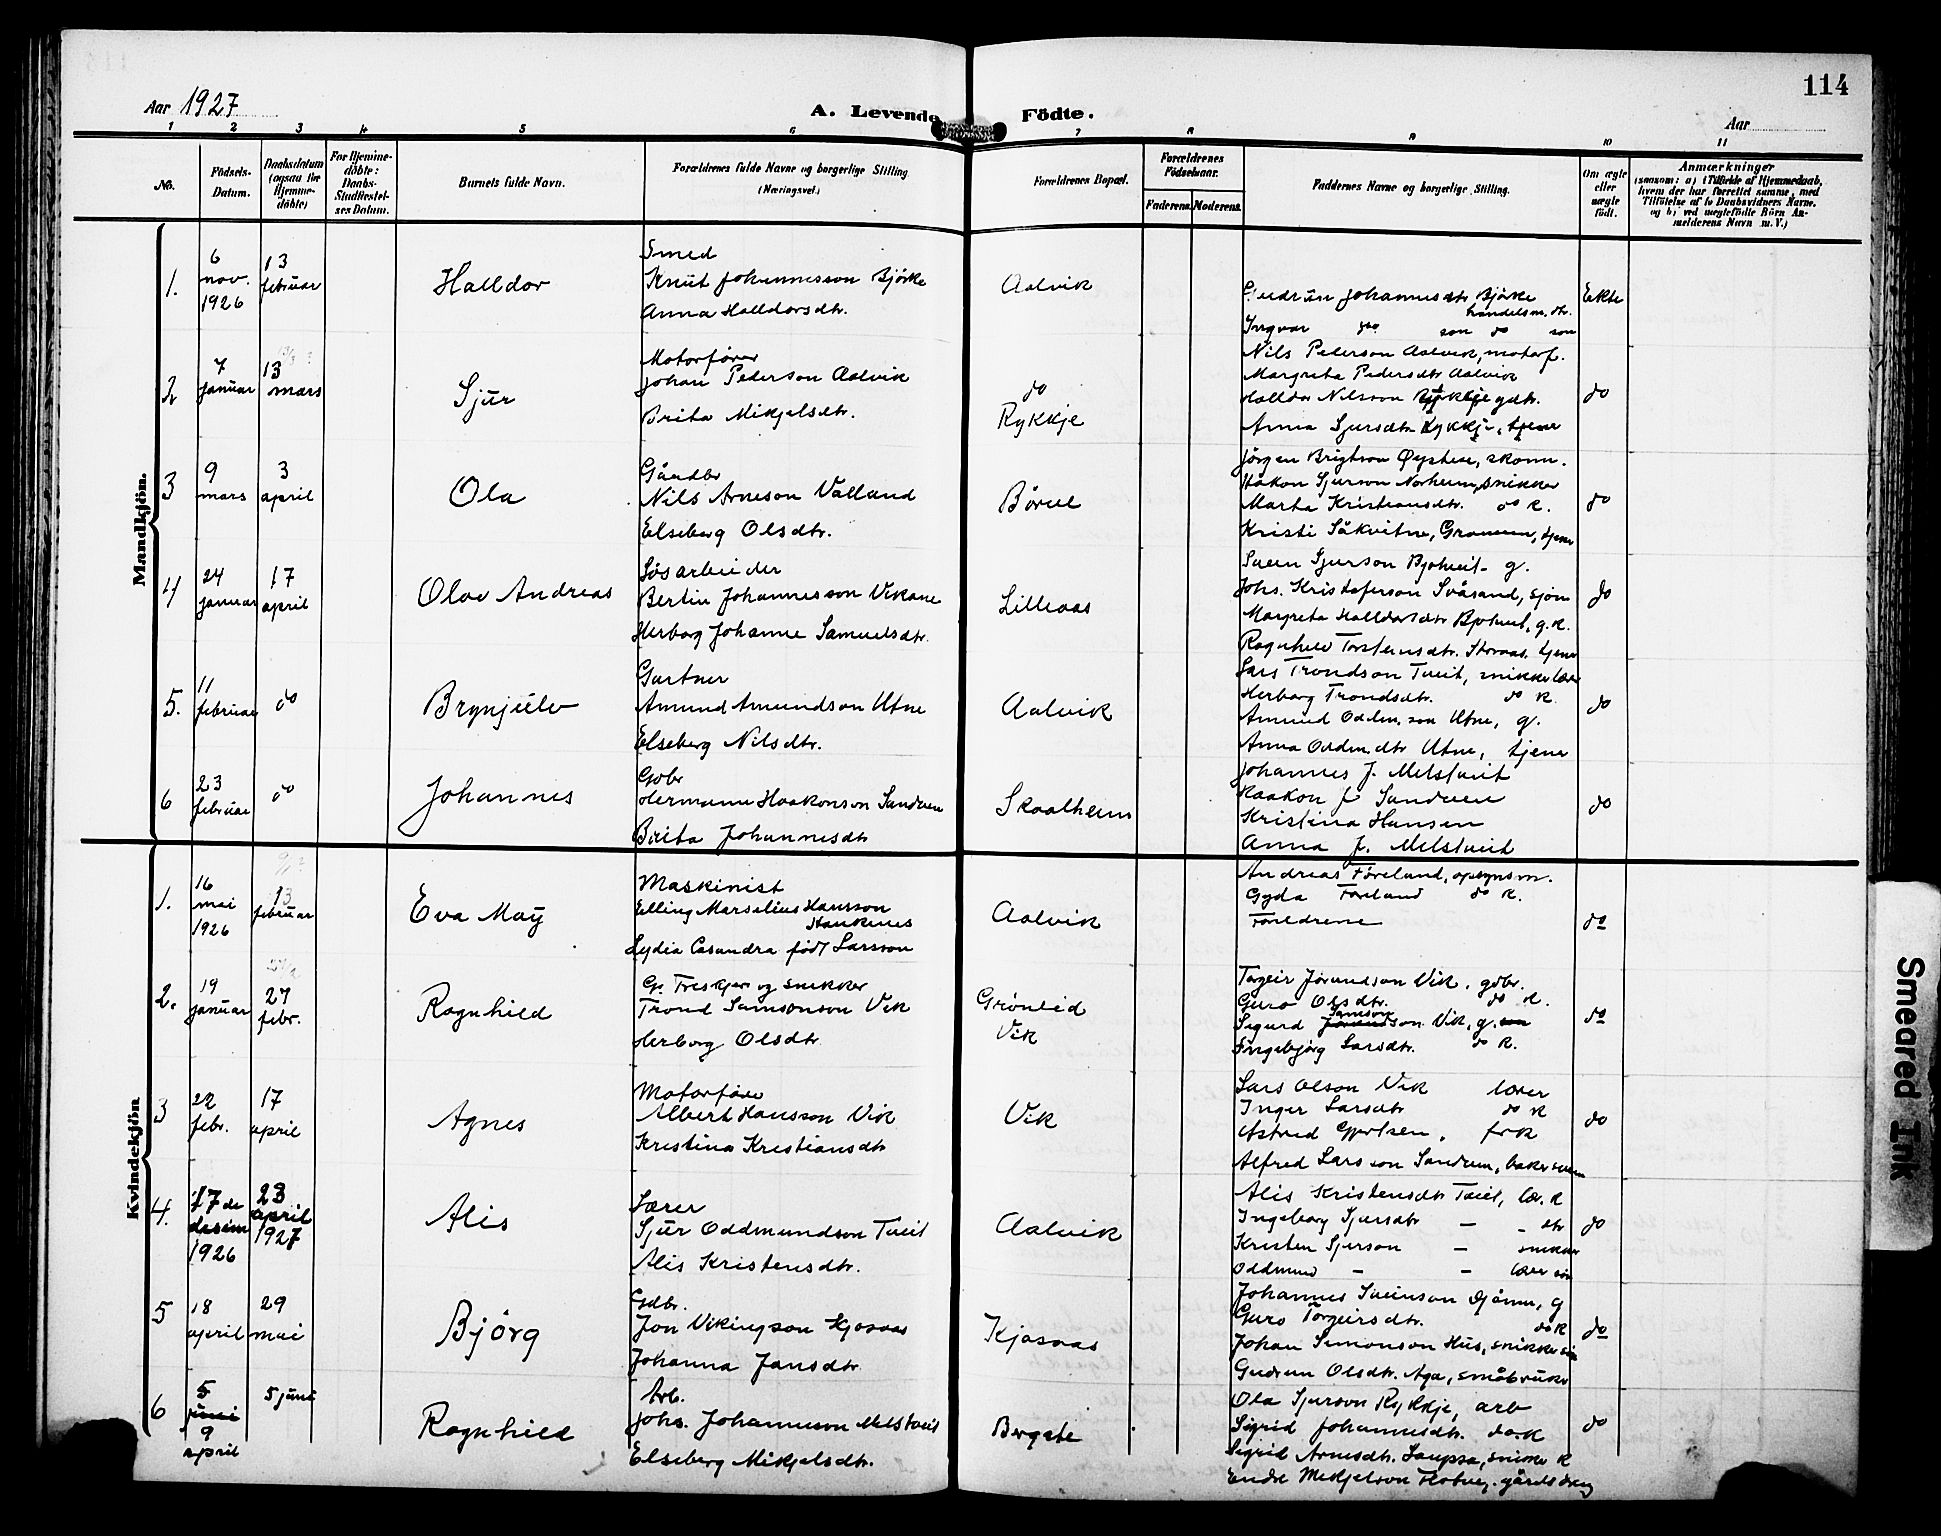 114
Aar 1927
A. Levende Födte.
Aar
1 2 3 4 5 6 7 8 9 10 11
No.
Födsels-Datum.
Daabsdatum (ogsaa for Hjemme-döbte)
For Hjemme-döbte: Daabs-Stadfæstel-ses Datum.
Barnets fulde Navn.
Forældrenes fulde Navne og borgerlige Stilling (Næringsvei.)
Forældrenes Bopæl.
Forældrenes Födselsaar.
Faderens. Moderens.
Faddernes Navne og borgerlige Stilling.
Om ægte eller uægte født.
Anmærkninger
(saasom: a) i Tilfælde af Hjemmedaab,
hvem der har forrettet samme, med
Tilföielse af to Daabsvidners Navne,
og b) ved uægtefödte Börn An-
melderens Navn m. V.)
Mandkjön.
1. 6 nov. 1926 13 februar Halldor
Smed
Knut Johannesson Bjørke
Anna Halldorsdtr.
Aalvik
Gudrun Johannesdtr Bjørke handelsm. dtr.
Ingvar do son do son
Ekte
2 7 januar 13 mars Sjur
Motorfører
Johan Pederson Aalvik
Brita Mikjelsdtr.
do
Rykkje
Nils Pederson Aalvik, motorf.
Margreta Pedersdtr Aalvik
Halldor Nilsson Rykkje gdtr.
Anna Sjursdtr Rykkje, tjener
do
3 9 mars 3 april Ola
Gårdbr
Nils Arneson Valland
Elseberg Olsdtr.
Børve
Jörgen Brigtson Øystese, skom.
Håkon Sjurson Norheim, snikker
Marta Kristiansdtr. do k.
Kristi Såkvitne, Gravem, tjener
do
4 24 januar 17 april Olav Andreas
Løsarbeider
Bertin Johannesson Vikane
Herborg Johanne Samuelsdtr.
Lilleaas
Svein Sjurson Bjotveit g.
Johs. Kristoferson Svåsand, sjöm
Margreta Halldorsdtr Bjotveit, g.k.
Ragnhild Torsteinsdtr. Storaas, tjener
do
5. 11 februar do Brynjulv
Gartner
Amund Amundson Utne
Elseberg Nilsdtr.
Aalvik
Lars Trondson Tveit, snikkerlær
Herborg Trondsdtr. do k.
Amund Oddm. son Utne, g.
Anna Oddm. dtr Utne, tjener
do
6 23 februar do Johannes
Gdbr
Hermann Haakonson Sandven
Brita Johannesdtr
Skaalheim
Johannes J. Melstveit
Haakon J Sandven
Kristina Hansen
Anna J. Melstveit
do
Kvindekjön
1. 16 mai 1926 13 februar Eva May
Maskinist
Elling Marselius Hansson
Haukenes
Lydia Casandra født Larsson
Aalvik
Andreas Føreland, opsynsm.
Gyda Foreland do k.
Foreldrene
do
2. 19 januar 27 febr. Ragnhild
G. Treskjær og snikker
Trond Samsonson Vik
Herborg Olsdtr.
Grønlid
Vik
Torgeir Jørundson Vik, gdbr.
Guro Olsdtr. do k.
Samson
Sigurd Jørundson Vik, g. son
Ingebjørg Larsdtr. do k.
do
3 22 febr. 17 april Agnes
Motorfører
Albert Hansson Vik
Kristina Kristiansdtr
Vik
Lars Olson Vik lærer
Inger Larsdtr do k
Astrid Gjertsen, frk
Alfred Larsson Sandven, bakersvenn
do
4. 17de desem 1926 23 april 1927 Alis
Lærer
Sjur Oddmundson Tveit
Alis Kristensdtr.
Aalvik
Alis Kristensdtr Tveit, lær. k
Ingeborg Sjursdtr - - dtr
Kristen Sjurson - snikker
Oddmund - - lærer søn
do
5 18 april 29 mai Björg
Gdbr.
Jon Vikingson Kjosaas
Johanna Jansdtr.
Kjosaas
Johannes Sveinson Djønne, g
Guro Torgeirsdtr. do k
Johan Simonson Hus, snikker søn
Gudrun Olsdtr. Aga, småbruker
do
6 5 juni 9 april 5 juni Ragnhild
Arb.
Johs. Johannesson Melstveit
Elseberg Mikjelsdtr.
Bergste
Ola Sjurson Rykkje, arb
Sigrid Johannesdtr. do. k
Sigrid Arnesdtr. Laupsa, snikker k
Endre Mikjelson Flotve, gårdsdreng
do
Smeared Ink